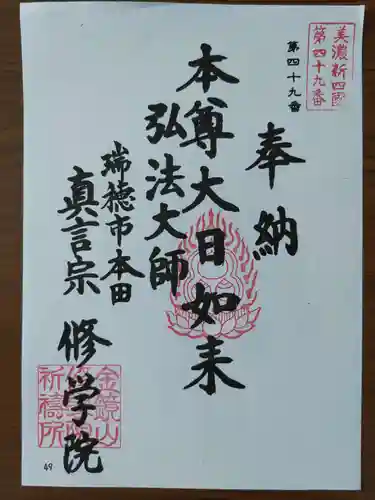 美濃新四國
第四十九番
第四十九番
奉納
本尊大日如来
弘法大師
瑞穂市本田
真言宗
修学院
金鏡山
祈禱所
49